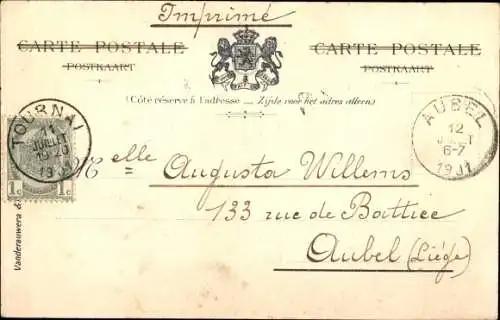 Imprimé
CARTE POSTALE
POSTKAART
CARTE POSTALE
POSTKAART
(Côté réservé à l'adresse — Zijde voor het adres alleen)
TOURNAI
11
JUILLET
19
1c 1c
AUBEL
12
JUILLET
6-7
1901
Melle Augusta Willems
133 rue de Battice
Aubel (Liége)
Vanderauwera &